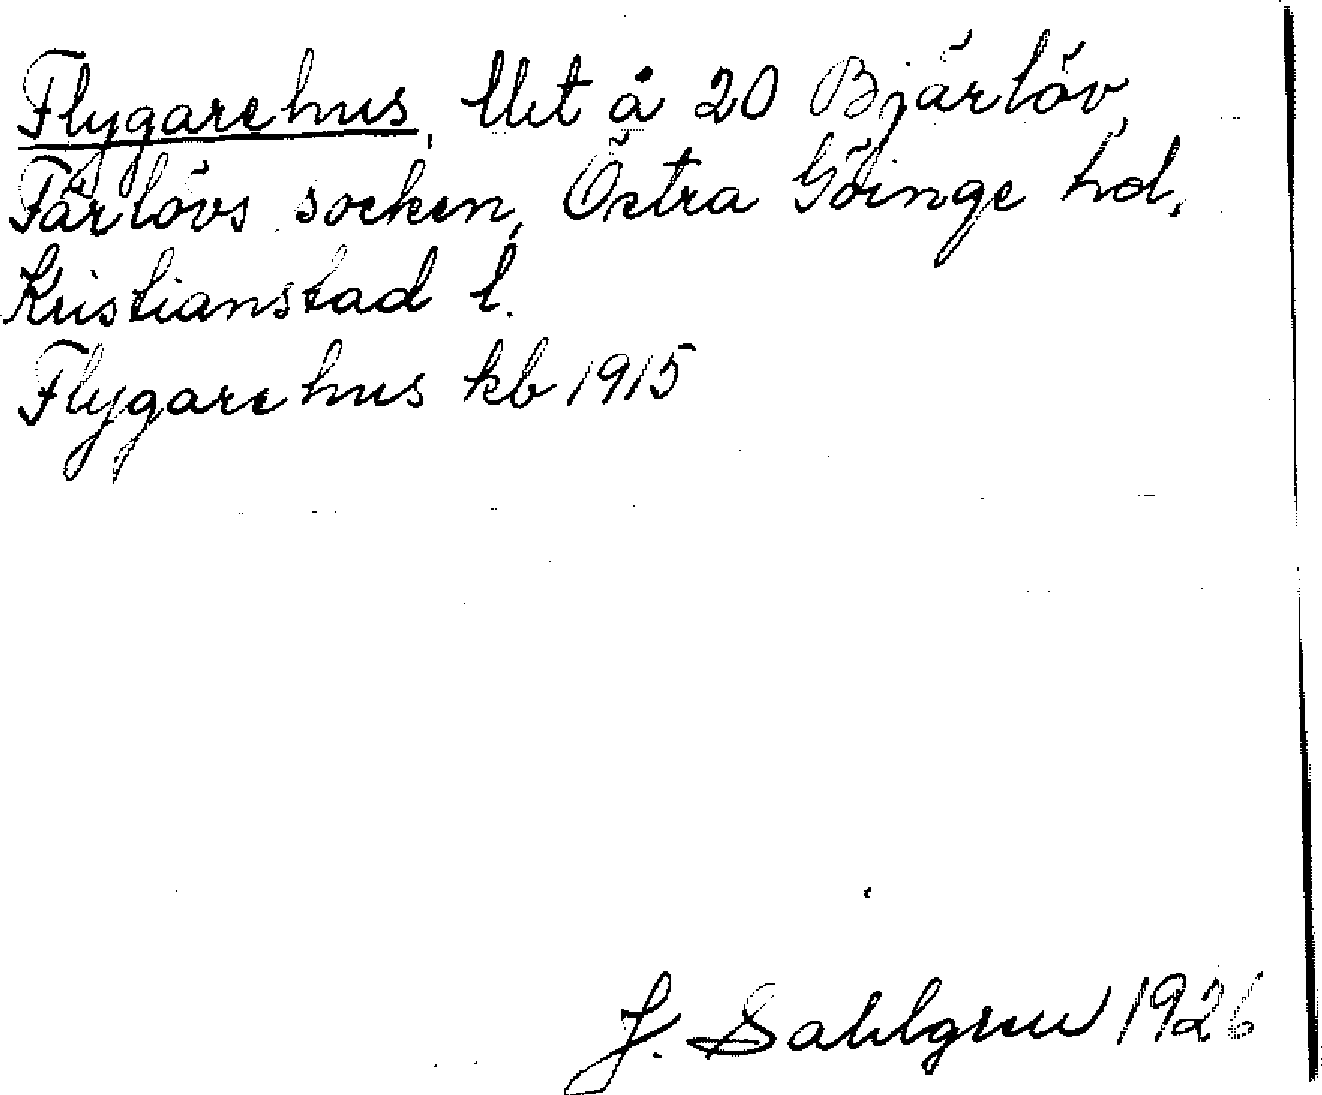 Flygarehus, Utet å 20 Bjärlöv,
Färlövs socken, Östra Göinge hd,
Kristianstad l.
Flygarehus kb 1915
J. Sahlgren 1926